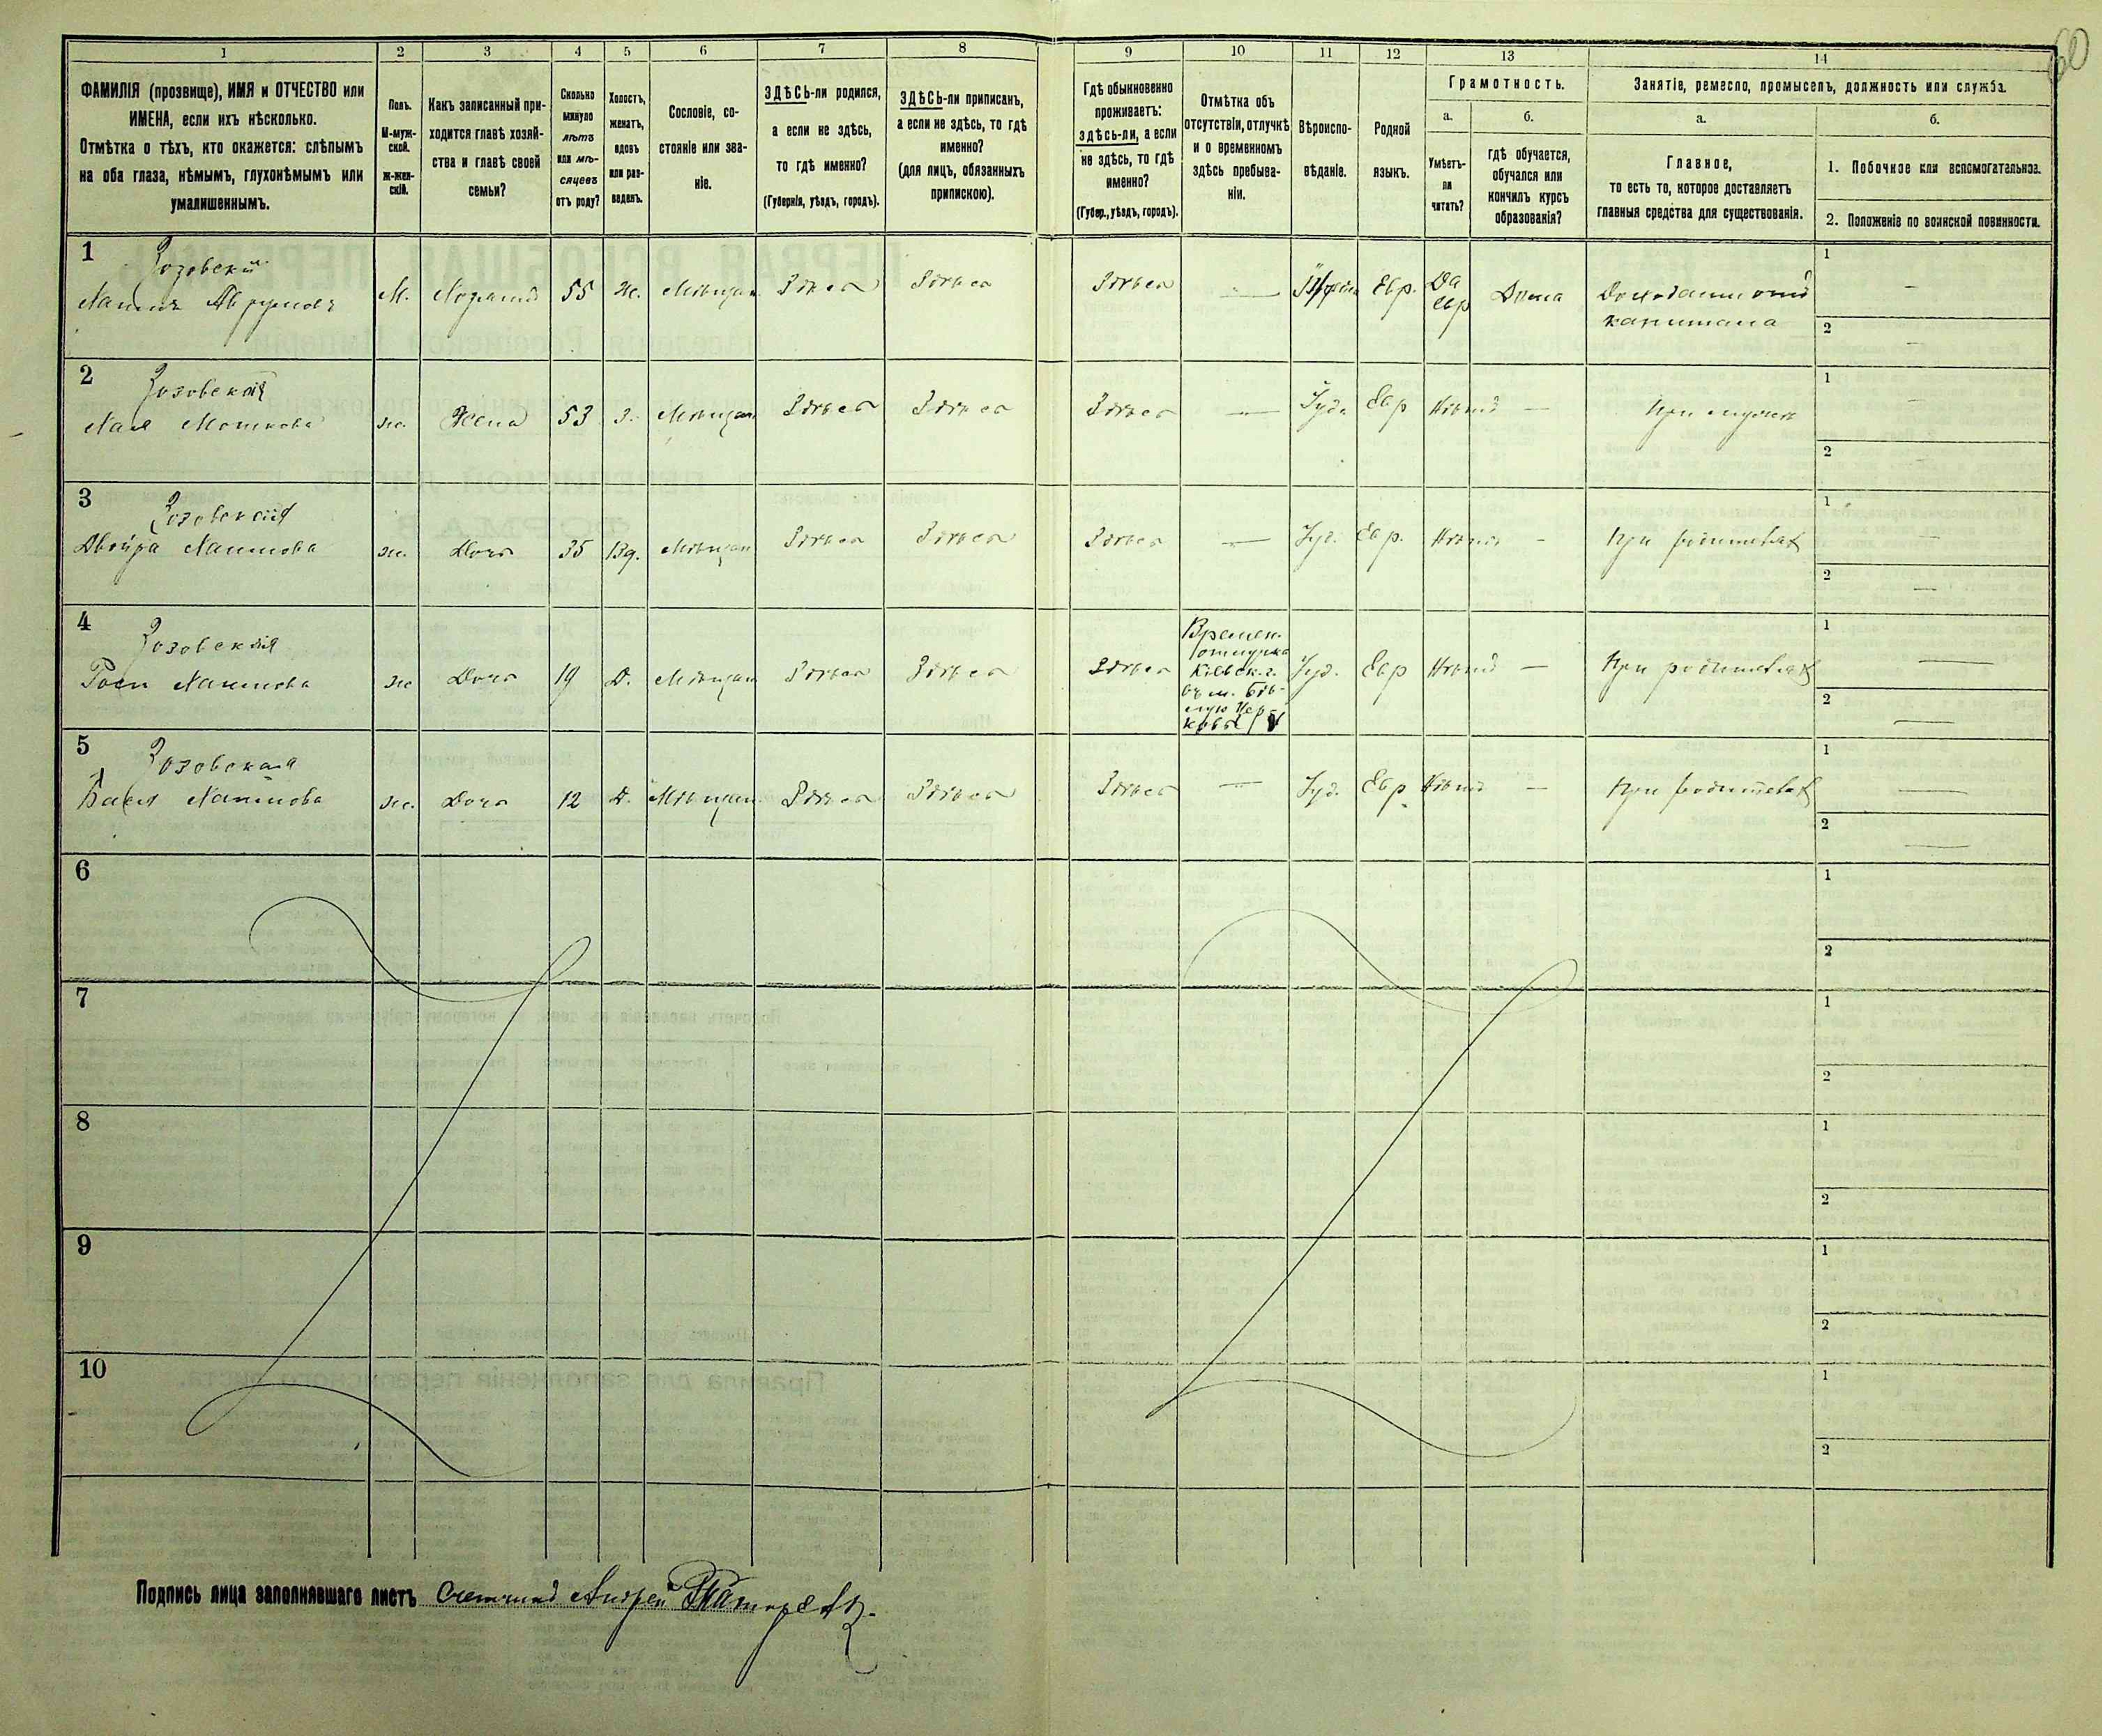 60
1
2
3
4
5
6
7
8
9
10
11
12
13
14
ФАМИЛІЯ (прозвище), ИМЯ и ОТЧЕСТВО или
ИМЕНА, если ихъ нѣсколько.
Отмѣтка о тѣхъ, кто окажется: слѣпымъ
на оба глаза, нѣмымъ, глухонѣмымъ или
умалишеннымъ.
Полъ.
М-муж-
ской.
ж-жен-
скій.
Какъ записанный при-
ходится главѣ хозяй-
ства и главѣ своей
семьи?
Сколько
минуло
лѣтъ
или мѣ-
сяцевъ
отъ роду?
Холостъ,
женатъ,
вдовъ
или раз-
веденъ.
Сословіе, со-
стояніе или зва-
ніе.
ЗДѢСЬ-ли родился,
а если не здѣсь,
то гдѣ именно?
(Губернія, уѣздъ, городъ).
ЗДѢСЬ-ли приписанъ,
а если не здѣсь, то гдѣ
именно?
(для лицъ, обязанныхъ
припискою).
Гдѣ обыкновенно
проживаетъ:
здѣсь-ли, а если
не здѣсь, то гдѣ
именно?
(Губер., уѣздъ, городъ).
Отмѣтка объ
отсутствіи, отлучкѣ
и о временномъ
здѣсь пребыва-
ніи.
Вѣроиспо-
вѣданіе.
Родной
языкъ.
Грамотность.
а.
Умѣетъ-
ли
читать?
б.
гдѣ обучается,
обучался или
кончилъ курсъ
образованія?
Занятіе, ремесло, промыселъ, должность или служба.
а.
Главное,
то есть то, которое доставляетъ
главныя средства для существованія.
б.
1. Побочное или вспомогательное.
2. Положеніе по воинской повинности.
1
Зозовскій
М.
55
Ж.
Мѣщан.
Здѣсь
Здѣсь
Здѣсь
—
Евр.
Да
Евр
Дома
капитала
1
—
2
—
2
Зозовская
ж.
Жена
53
З.
Мѣщан
Здѣсь
Здѣсь
Здѣсь
—
Іуд.
Евр
Нѣтъ
—
При мужѣ
1
—
2
—
3
Зозовская
Двойра
ж.
Дочь
35
Вд.
Мѣщан
Здѣсь
Здѣсь
Здѣсь
—
Іуд.
Евр.
Нѣтъ
-
При родителях
1
—
2
—
4
Зозовская
ж
Дочь
19
Д.
Мѣщан
Здѣсь
Здѣсь
Здѣсь
Времен.
отлучка
Кіевск. г.
въ м. Бѣ-
лую Цер-
ковь
Іуд.
Евр
Нѣтъ
—
При родителях
1
—
2
—
5
Зозовская
Бася
ж.
Дочь
12
Д.
Мѣщан.
Здѣсь
Здѣсь
Здѣсь
—
Іуд.
Евр.
Нѣтъ
—
При родителях
1
—
2
—
6
1
2
7
1
2
8
1
2
9
1
2
10
1
2
Подпись лица заполнявшаго листъ Счетчикъ Андрей